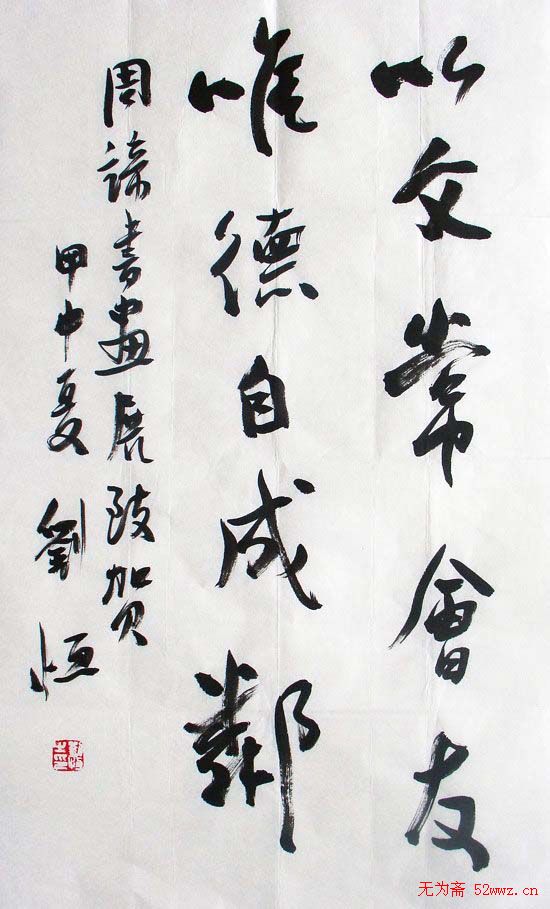 以文常會友
唯德自成鄰
周諦書畫展致賀
甲申夏 劉恒
无为斋 52wwz.cn